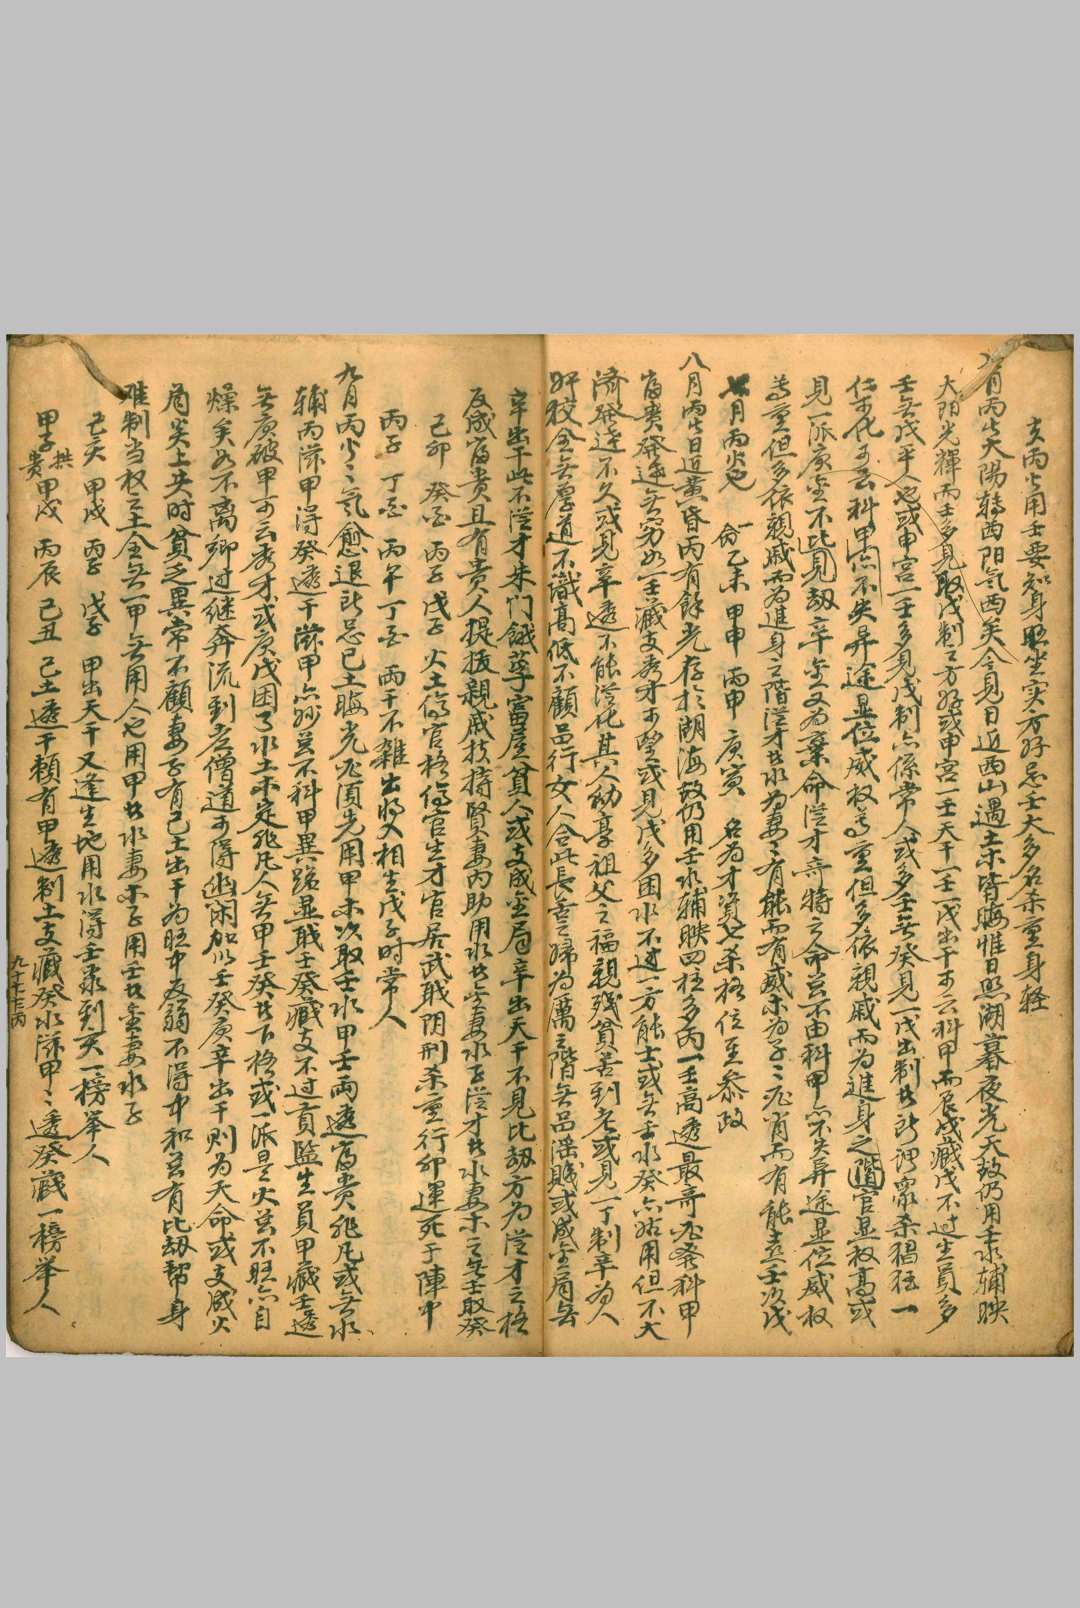 亥丙火用壬要知身临坐实方好忌壬太多名杀重身轻
月丙火太陽轉西阳氣西矣今見日近西山遇土木皆晦惟日照湖暮夜光天故仍用壬水辅映
太阳光輝而壬多見取戊制之方好或申宮一壬天干一壬一戊出干可云科甲而辰戌藏戊不过生員多
壬无戊平人也或申宮一壬多見戊制亦係常人或多壬无癸見一戊出制此所謂眾杀猖狂一
仁可化可云科甲亦不失异途显位威权高重但多依親戚而為進身之階官显权高或
見一派庚金不比見劫辛金又為棄命從才奇特之命总不由科甲亦不失异途显位威权
高重但多依親戚而為進身之階從才此水為妻有能而有威木為子必肖而有能喜壬次戊
七月丙火也 命乙未 甲申 丙申 庚寅 名为才資七杀格位至参政
八月丙火日近黃昏丙有餘光存於湖海故仍用壬水辅映四柱多丙一壬高透最奇必登科甲
富贵發達无穷如一壬藏支秀才可望或見戊多困水不过一方能士或无壬水癸亦能用但不大
濟發達不久或見辛透不能從化其人幼享祖父之福親残貧苦到老或見一丁制辛為人
奸狡全无厚道不識高低不顧品行女人合此長舌之婦為厲之階无品淫贱或成金局无
辛出干此不從才朱门餓莩富屋貧人或支成金局辛出天干不見比劫方為從才之格
反成富贵且有贵人提拔親戚扶持賢妻內助用水此金妻水子從才此水妻木子无壬取癸
己卯 癸酉 丙子 戊子 火土傷官格傷官生才官居武戢阴刑杀重行卯運死于陣中
丙子 丁酉 丙午 丁酉 兩干不雜出将入相生戊子时常人
九月丙火火氣愈退所忌己土晦光必須先用甲木次取壬水甲壬兩透富贵非凡或无水
辅丙滋甲得癸透干滋甲亦妙总不科甲異路显戢壬癸藏支不过贡監生員甲藏壬透
无庚破甲可云秀才或庚戊困了水土木定非凡人无甲壬癸此下格或一派旦火总不旺亦自
燥矣如不离鄉过继奔流到老僧道可得幽閑加以壬癸庚辛出干则为天命或支成火
局炎上失时貧乏異常不顧妻子有己土出干为旺中反弱不得中和总有比劫帮身
难制当权之土全无一甲无用人也用甲此水妻木子用壬此金妻水子
己亥 甲戌 丙子 戊子 甲出天干又逢生地用水得壬录到亥一榜举人
甲子 拱贵 甲戌 丙辰 己丑 己土透干頼有甲透制土支藏癸水滋甲甲透癸藏一榜举人